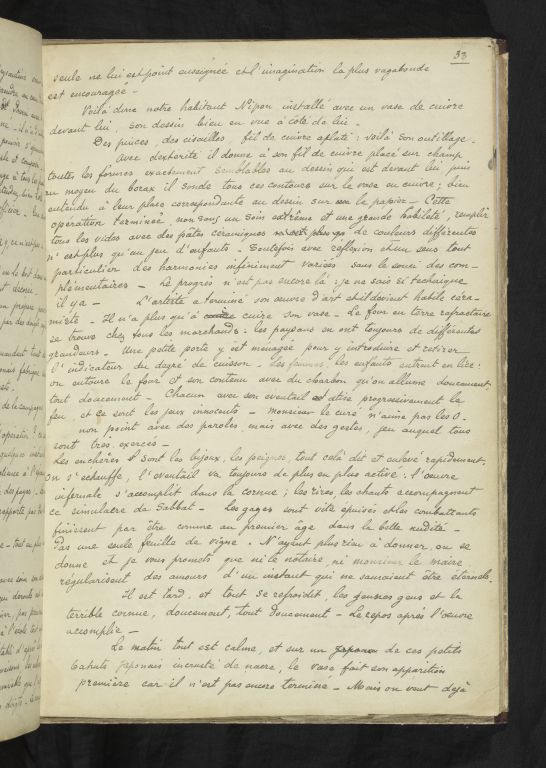 33
seule ne lui est point enseignée et l'imagination la plus vagabonde
est encouragée —
Voilà donc notre habitant Nipon installé avec un vase de cuivre
devant lui son dessin bien en vue à côté de lui —
Des puces, des cisailles, fil de cuivre aplati: voilà son outillage.
Avec dextérité il donne à son fil de cuivre placé sur champ
toutes les formes exactement semblables au dessin qui est devant lui, puis
au moyen du borax il sonde tous ces contours sur le vase en cuivre; bien
entendu à leur place correspondante au dessin sur le papier — Cette
opération terminée, non sans un soin extrême et une grande habileté, remplir
tous les vides avec des pâtes céramiques de couleurs différentes
n'est plus qu'un jeu d'enfants — Toutefois avec réflexion et un sens tout
particulier des harmonies infiniment variées sans le souci des com-
plémentaires — Le progrès n'est pas encore là: je ne sais si technique
il y a — L'artiste a terminé son œuvre d'art et il devient habile céra-
miste — Il n'a plus qu'à cuire son vase — Le four en terre réfractaire
se trouve chez tous les marchands: les paysans en ont toujours de différentes
grandeurs — Une petite porte y est ménagée pour y introduire et retirer
l'indicateur du degré de cuisson — Les femmes, les enfants entrent en lice:
on entoure le four et son contenu avec du charbon qu'on allume doucement
tout doucement — Chacun avec son éventail attise progressivement le
feu, et ce sont les jeux innocents — Monsieur le curé n'aime pas les O-
non point avec des paroles, mais avec des gestes, jeu auquel tous
sont très exercés —
Les enchères sont les bijoux, les peignes, tout celà dit et enlevé rapidement.
On s'échauffe, l'éventail va toujours de plus en plus activé: l'œuvre
infernale s'accomplit dans la cornue; les rires, les chants accompagnent
ce simulacre du Sabbat — Les gages sont vite épuisés et les combattants
finissent par être comme au premier âge dans la belle nudité —
Pas une seule feuille de vigne. N'ayant plus rien à donner, on se
donne et je vous promets que ni le notaire, ni monsieur le maire
régularisent des amours d'un instant qui ne sauraient être éternels.
Il est tard, et tout se refroidit, les jeunes gens et la
terrible cornue, doucement, tout doucement — Le repos après l'œuvre
accomplie —
Le matin tout est calme, et sur un de ces petits
bahuts japonais incrusté de nacre, le vase fait son apparition
première car il n'est pas encore terminé — Mais on veut déjà